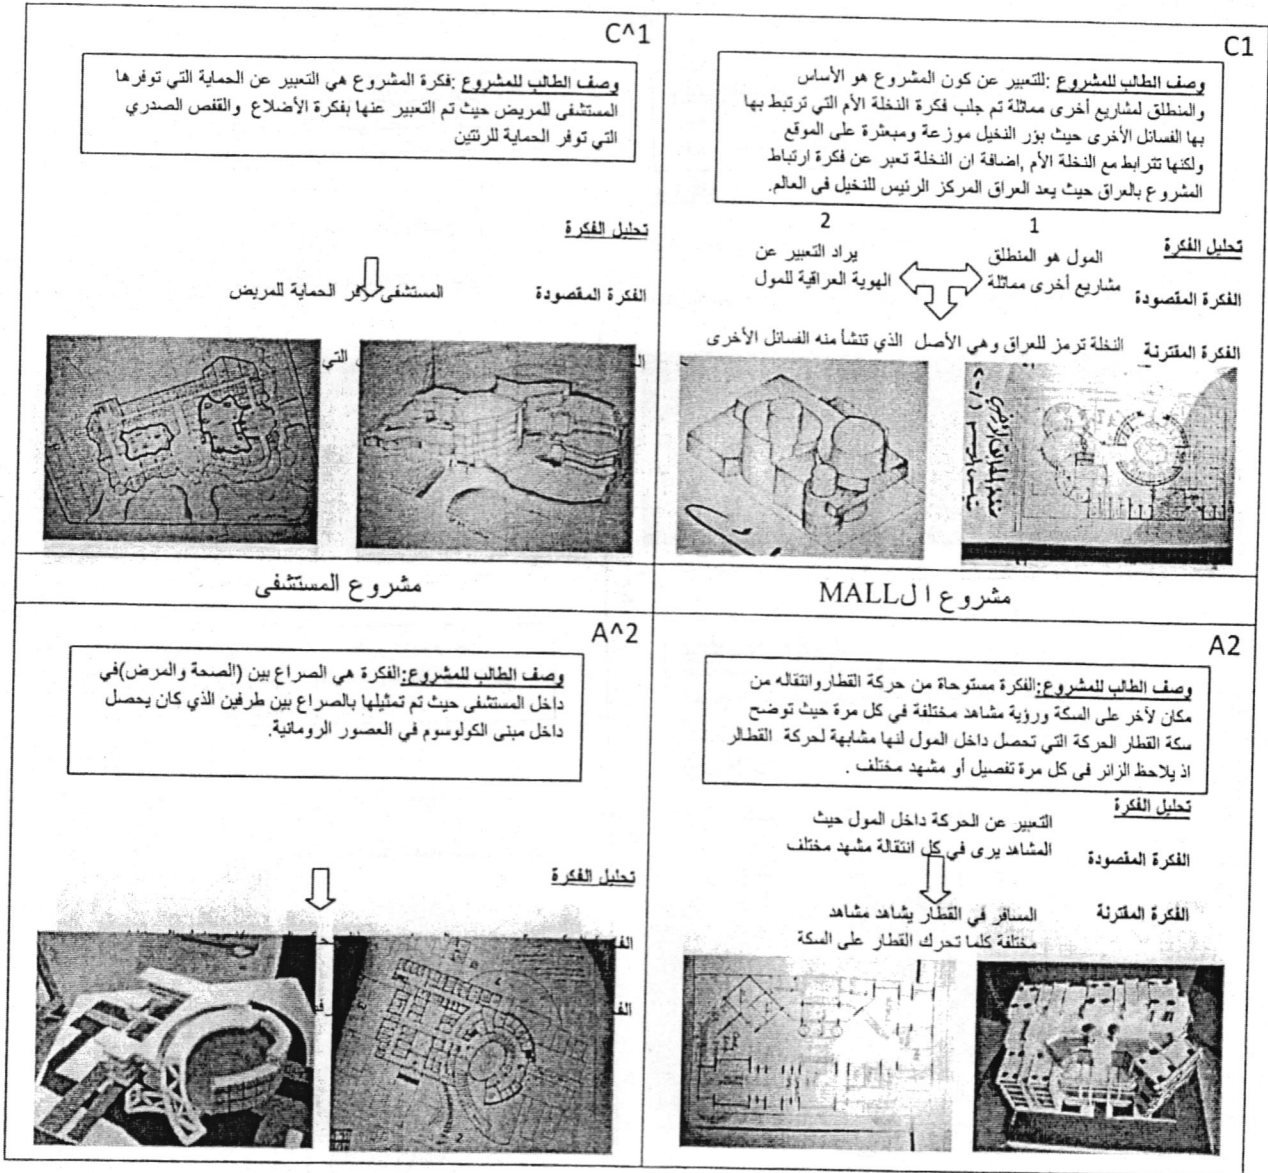 C1
وصف الطالب للمشروع :للتعبير عن كون المشروع هو الأساس
والمنطلق لمشاريع أخرى مماثلة تم جلب فكرة النخلة الأم التي ترتبط بها
بها الفسائل الأخرى حيث بؤر النخيل موزعة ومبعثرة على الموقع
ولكنها تترابط مع النخلة الأم ,إضافة ان النخلة تعبر عن فكرة ارتباط
المشروع بالعراق حيث يعد العراق المركز الرئيس للنخيل في العالم.
تحليل الفكرة
1
2
المول هو المنطلق
يراد التعبير عن
الفكرة المقصودة
مشاريع أخرى مماثلة
الهوية العراقية للمول
الفكرة المقترنة
النخلة ترمز للعراق وهي الأصل الذي تنشأ منه الفسائل الأخرى
C^1
وصف الطالب للمشروع :فكرة المشروع هي التعبير عن الحماية التي توفرها
المستشفى للمريض حيث تم التعبير عنها بفكرة الأضلاع والقفص الصدري
التي توفر الحماية للرئتين
تحليل الفكرة
الفكرة المقصودة
المستشفى الحماية للمريض
التي
مشروع الMALL
مشروع المستشفى
A2
وصف الطالب للمشروع:الفكرة مستوحاة من حركة القطاروانتقاله من
مكان لأخر على السكة ورؤية مشاهد مختلفة في كل مرة حيث توضح
سكة القطار الحركة التي تحصل داخل المول لنها مشابهة لحركة القطالر
اذ يلاحظ الزائر في كل مرة تفصيل أو مشهد مختلف .
تحليل الفكرة
التعبير عن الحركة داخل المول حيث
الفكرة المقصودة
المشاهد يرى في كل انتقالة مشهد مختلف
الفكرة المقترنة
المسافر في القطار يشاهد مشاهد
مختلفة كلما تحرك القطار على السكة
A^2
وصف الطالب للمشروع:الفكرة هي الصراع بين (الصحة والمرض)في
داخل المستشفى حيث تم تمثيلها بالصراع بين طرفين الذي كان يحصل
داخل مبنى الكولوسوم في العصور الرومانية.
تحليل الفكرة